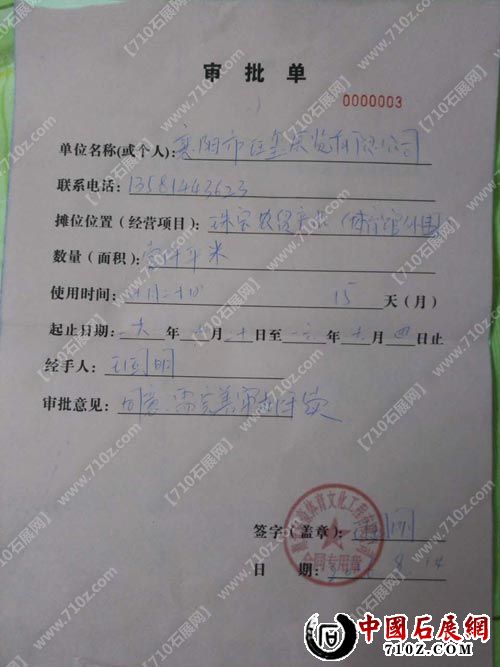 审批单
0000003
单位名称(或个人): 襄阳市 展览有限公司
联系电话: 13581443623
摊位位置(经营项目): 珠宝农贸 (体育馆外围)
数量(面积): 平米
使用时间: 15 天(月)
起止日期: 一六 年 月 十日至 一六 年 月 四日止
经手人: 明
审批意见: 同意.需完善审批手续
体育文化工程有限公司
合同专用章
签字(盖章):
日 期: 8 14
中國石展網
www.710z.com
【710石展网】
www.710z.com